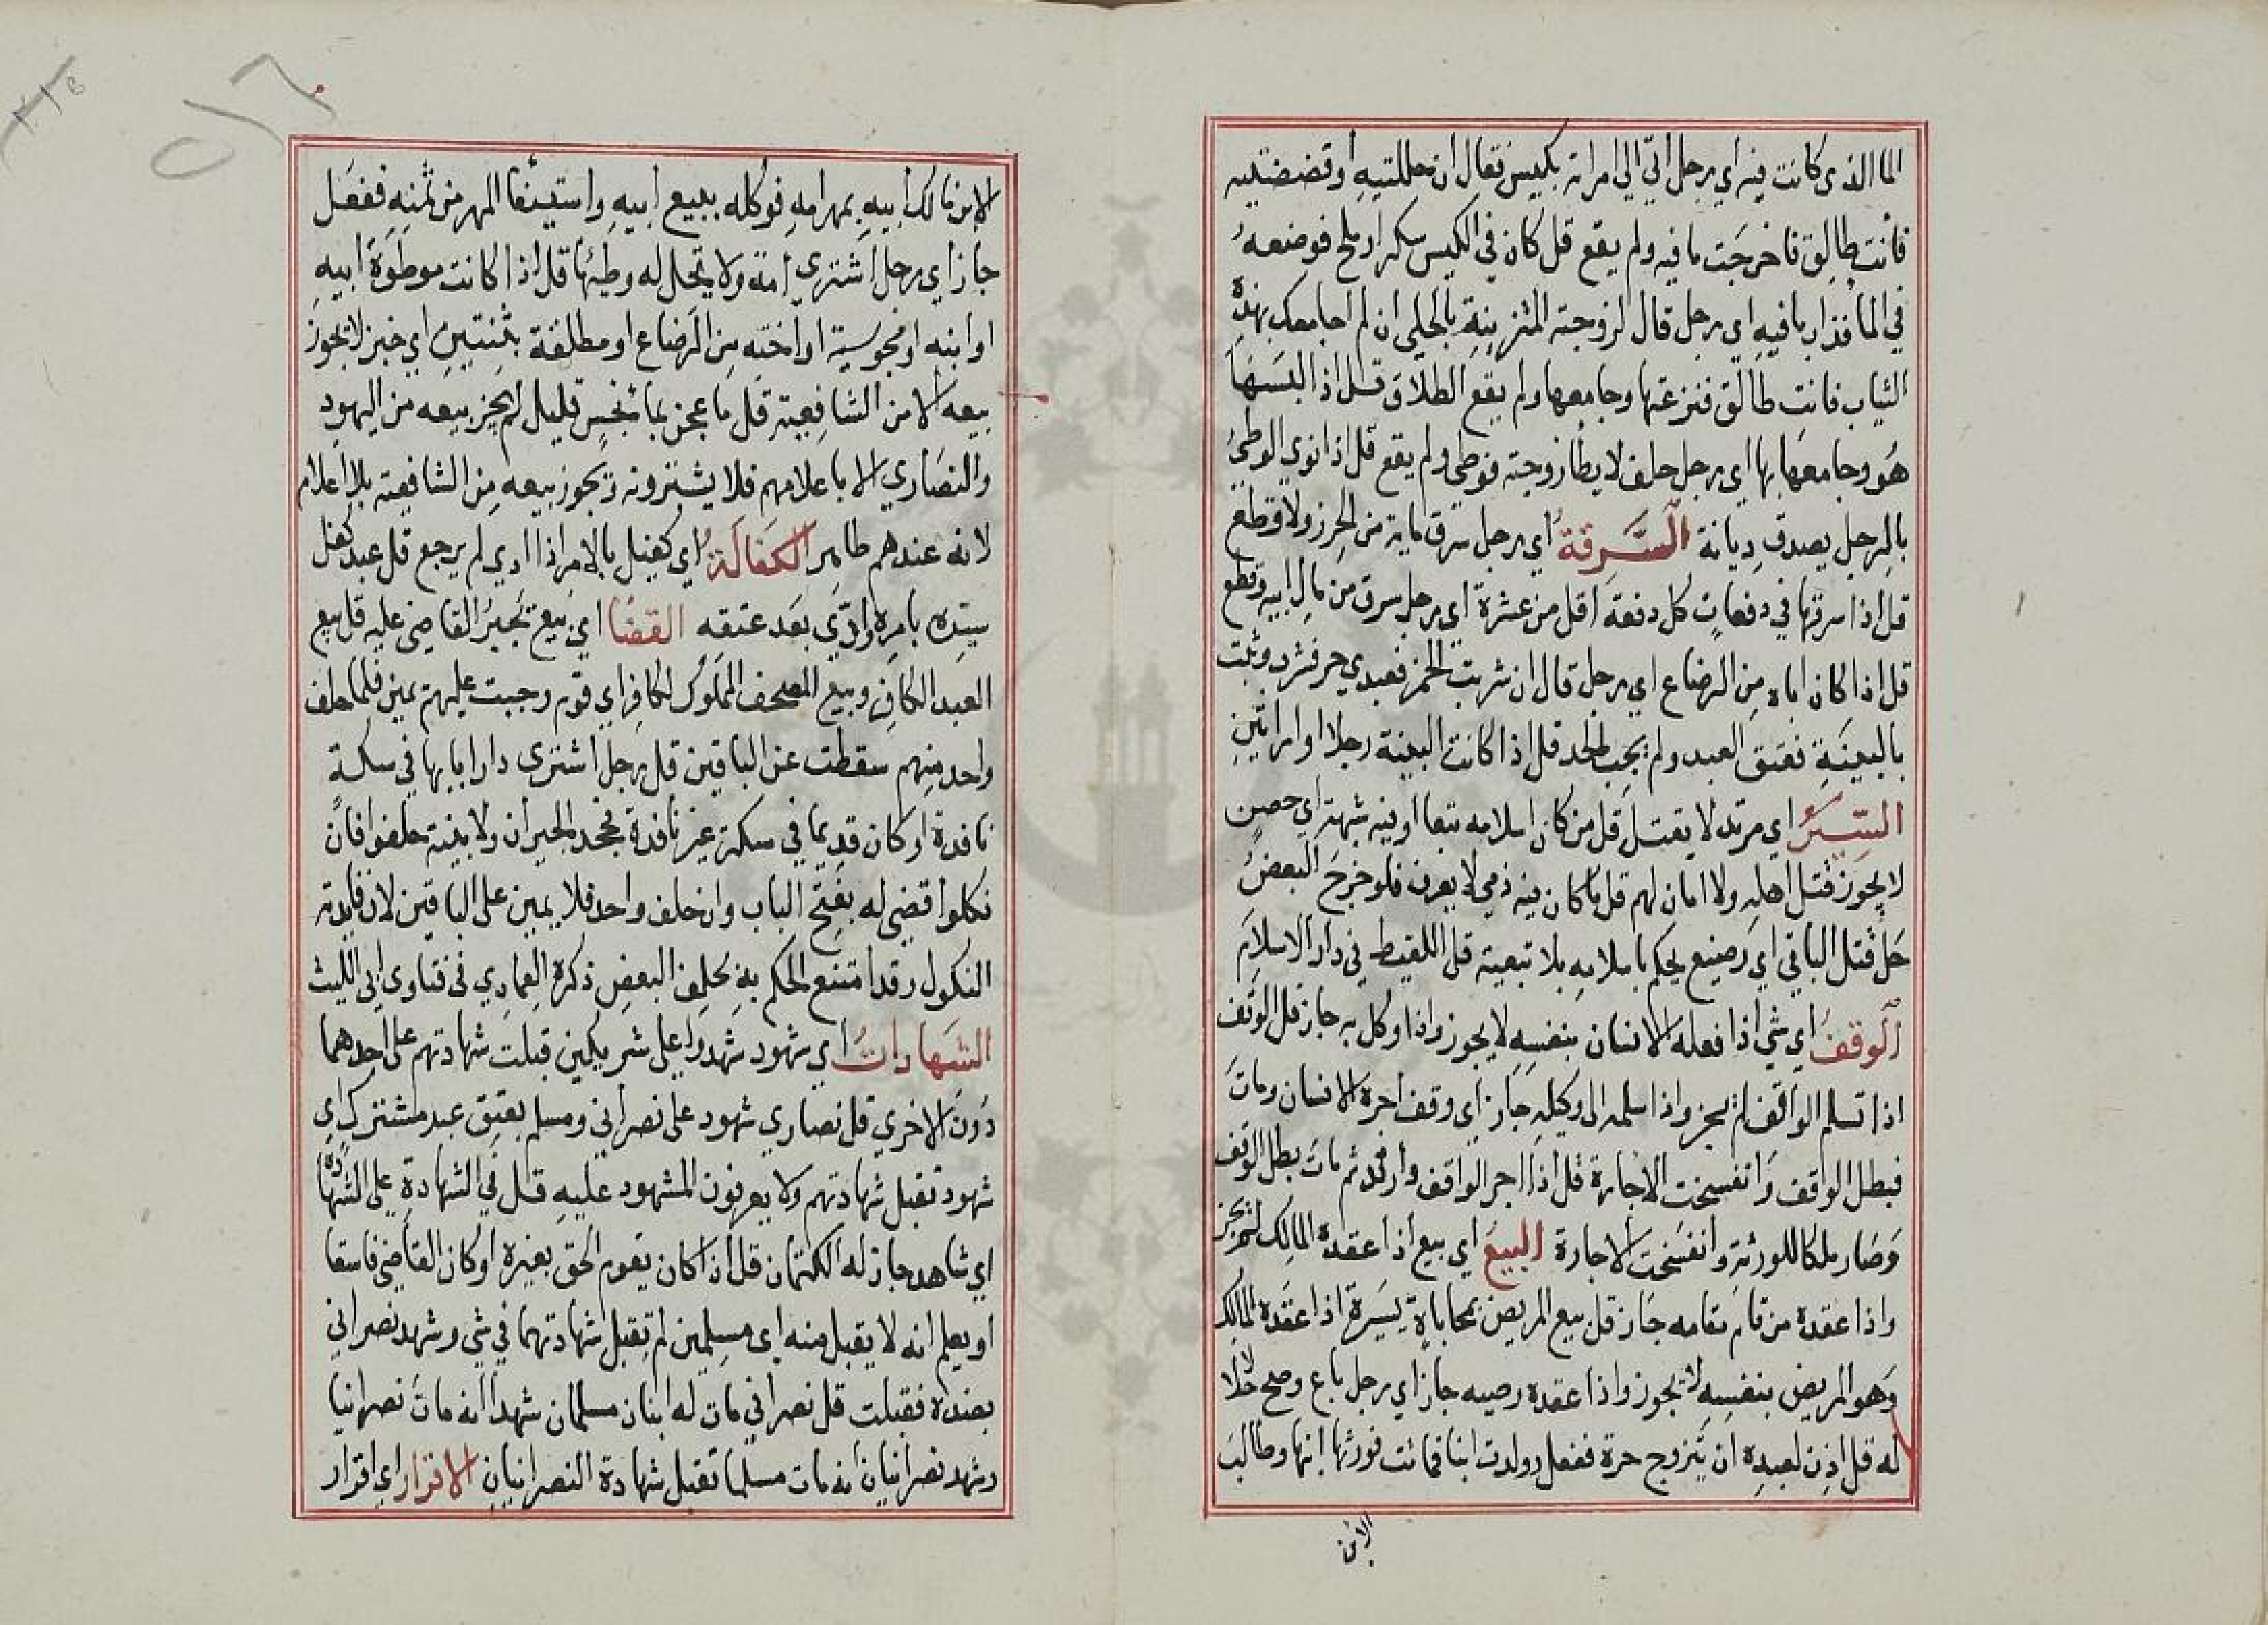 الما الذي كانت فيه اي رجل اتي الي امراته بكيس فقال ان حللتيه أو قضضتيه
فانت طالق فاخرجت ما فيه ولم يقع قل كان في الكيس سكر او ملح فوضعه
في الما فذاب ما فيه اي رجل قال لزوجته المتزينة بالحلي ان لم اجامعك بهذه
الثياب فانت طالق فنزعتها وجامعها ولم يقع الطلاق قل اذا البسها
هو وجامعها بها اي رجل حلف لا يطأ زوجته فوطي ولم يقع قل اذا نوي الوطي
بالرجل يصدق ديانة السرقة أي رجل سرق ماية من الحرز ولا قطع
قل اذا سرقها في دفعات كل دفعة اقل من عشرة اي رجل سرق من مال ابيه وقطع
قل اذا كان اباه من الرضاع اي رجل قال ان شربت الخمر فعبدي حر فشرد وثبت
بالبينة فعتق العبد ولم يجب الحد قل اذا كانت البينة رجلا وامراتين
السير اي مرتد لا يقتل قل من كان اسلامه تبعا او فيه شبهة اي حصن
لا يجوز قتل اهله ولا امان لهم قل ما كان فيه ذمي لا يعرف فلو خرج البعض
حل قتل الباقي اي رضيع يحكم باسلامه بلا تبعية قل اللقيط في دار الاسلام
الوقف اي شي اذا فعله الانسان بنفسه لا يجوز واذا وكل به جاز قل الوقف
اذا تسلم الواقف لم يجز واذا سلمه الى وكيله جاز اي وقف اجره الانسان ومات
فبطل الوقف وانفسخت الاجارة قل اذا اجر الواقف وارتد ثم مات بطل الوقف
وصار ملكا للورثة وانفسخت الاجارة البيع اي بيع اذا عقده المالك لم يجز
واذا عقده من قام مقامه جاز قل بيع المريض بمحاباة يسيرة اذا عقده المالك
وهو المريض بنفسه لا يجوز واذا عقده وصيه جاز اي رجل باع وصح حلالا
له قل اذن لعبده ان يتزوج حرة ففعل وولدت ابنا فماتت فورثها ابنها وطالب
الابن
الابن مالك أبيه بمهر امه فوكله ببيع أبيه واستيفا المهر من ثمنه ففعل
جاز اي رجل اشتري أمة ولا يحل له وطيها قل اذا كانت موطوة ابيه
او ابنه او مجوسية او اخته من الرضاع او مطلقة بثنتين اي خبز لا يجوز
بيعه الا من الشافعية قل ما عجن بما نجس قليل لم يجز بيعه من اليهود
والنصاري الا باعلامهم فلا يشترونه ويجوز بيعه من الشافعية بلا اعلام
لانه عندهم طاهر الكفالة اي كفيل بالامر اذا ادي لم يرجع قل عبد كفل
سيده بامره وادي بعد عتقه القضا اي بيع يجبر القاضي عليه قل بيع
العبد الكافر وبيع المصحف المملوك لكافر اي قوم وجبت عليهم يمين فلما حلف
واحد منهم سقطت عن الباقين قل رجل اشترى دارا بابها في سكة
نافدة او كان قديما في سكة غير نافدة فجحد الجيران ولا بينة حلفوا فان
نكلوا قضي له بفتح الباب وان حلف واحد فلا يمين على الباقين لان فايدته
النكول وقد امتنع الحكم به بحلف البعض ذكره العمادي في فتاوى ابي الليث
الشهادات اي شهود شهدوا على شريكين قبلت شهادتهم على احدهما
دون الاخري قل نصاري شهود على نصراني ومسلم بعتق عبد مشترك اي
شهود تقبل شهادتهم ولا يعرفون المشهود عليه قل في الشهادة على الشهادة
اي شاهد جاز له الكتمان قل اذا كان يقوم الحق بغيره او كان القاضي فاسقا
او يعلم انه لا يقبل منه اي مسلمين لم تقبل شهادتهما في شي وشهد نصراني
بضده فقبلت قل نصراني مات له ابنان مسلمان شهدا انه مات نصرانيا
وشهد نصرانيان انه مات مسلما تقبل شهادة النصرانيان الاقرار اي اقرار